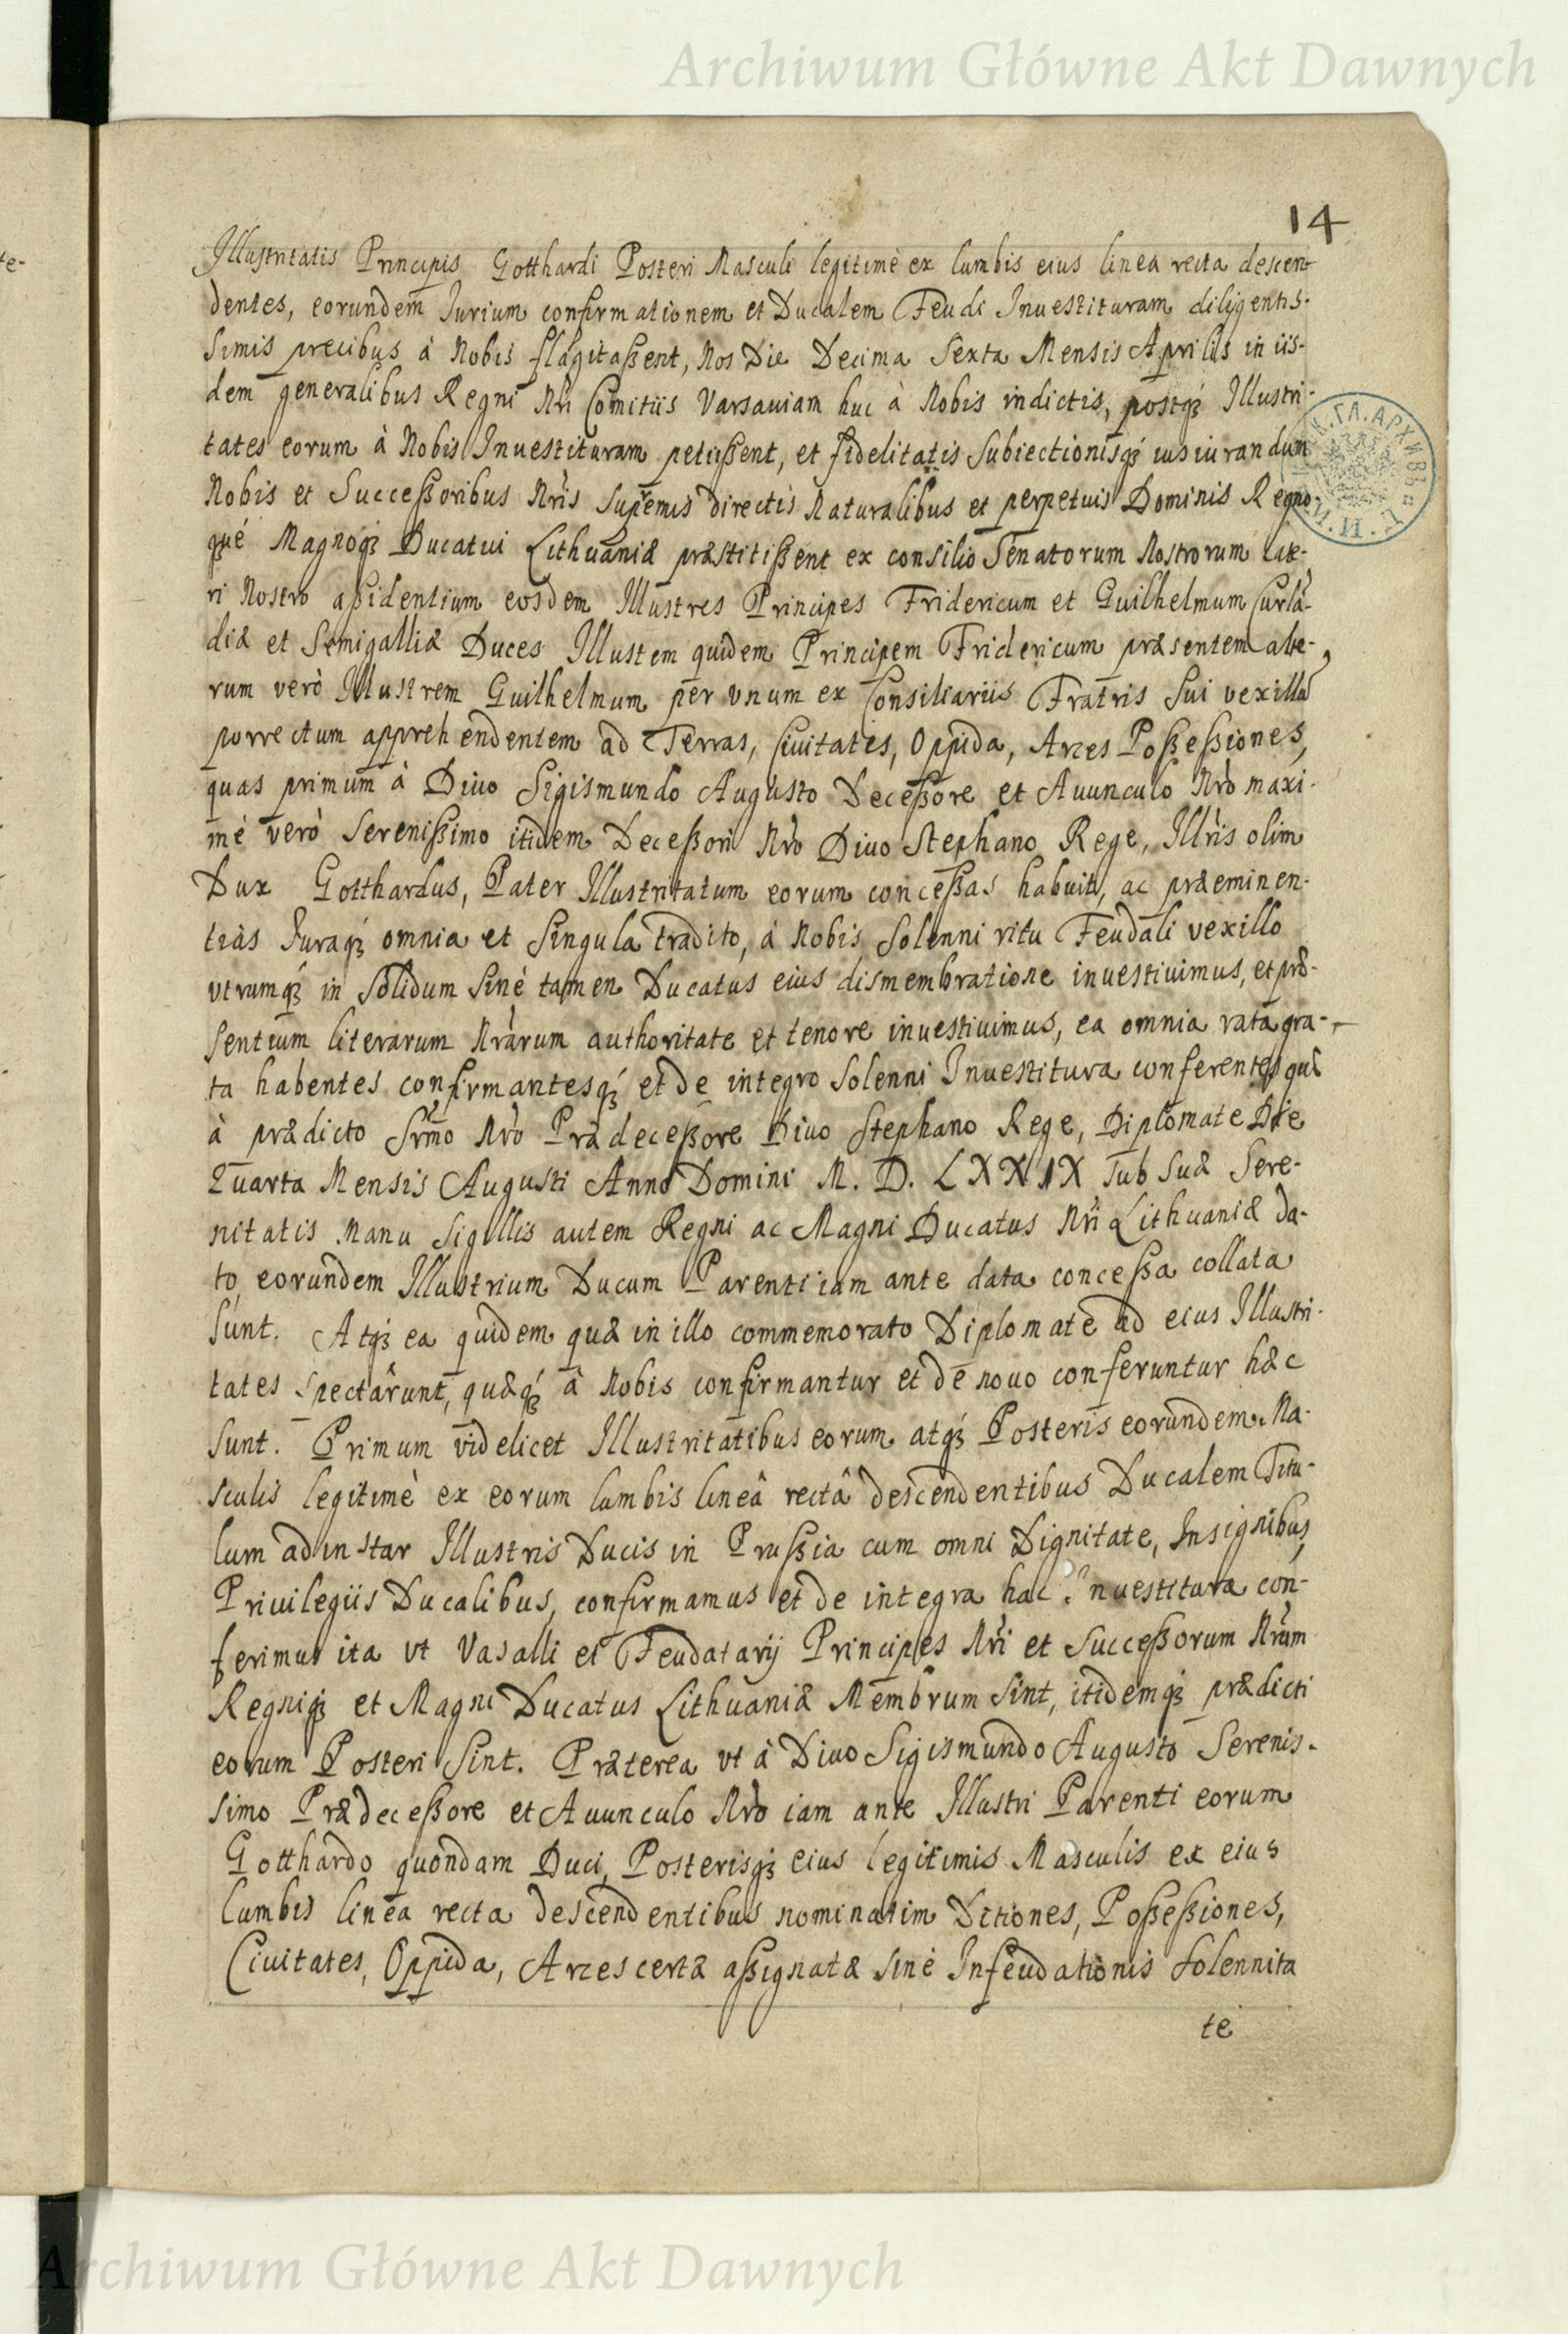 Archiwum Główne Akt Dawnych
14
Illustritatis Principis Gotthardi Posteri Masculi legitimè ex lumbis eius linea recta descen-
dentes, eorundem Iurium confirmationem et Ducalem Feudi Inuestituram diligentis-
simis precibus à Nobis flagitaßent, Nos Die Decima Sexta Mensis Aprilis in iis-
dem generalibus Regni Nri Comitiis Varsauiam huc à Nobis indictis, postqꝫ Illustri-
tates eorum à Nobis Inuestituram petiißent, et fidelitatis Subiectionisqꝫ iusiurandum
Nobis et Succeßoribus Nris Supremis directis Naturalibus et perpetuis Dominis Regno-
qué Magnoqꝫ Ducatui Lithuaniæ præstitißent ex consilio Senatorum Nostrorum late-
ri Nostro aßidentium eosdem Illustres Principes Fridericum et Guilhelmum Curlā-
diæ et Semigalliæ Duces Illustem quidem Principem Fridericum præsentem alte-
rum verò Illustrem Guilhelmum per vnum ex Consiliariis Fratris Sui vexillū
porrectum apprehendentem ad Terras, Ciuitates, Oppida, Arces Poßeßiones,
quas primum à Diuo Sigismundo Augusto Deceßore et Auunculo Nrò maxi-
mè verò Serenißimo itidem Deceßori Nrò Diuo Stephano Rege, Illris olim
Dux Gotthardus, Pater Illustritatum eorum conceßas habuit, ac præeminen-
tiàs Iuraqꝫ omnia et Singula tradito, à Nobis Solenni ritu Feudali vexillo
vtrumqꝫ in Solidum Sinè tamen Ducatus eius dismembratione inuestiuimus, et præ-
sentium literarum Nrārum authoritate et tenore inuestiuimus, ea omnia rata gra-
ta habentes confirmantesqꝫ et de integro Solenni Inuestitura conferentes quæ
à prædicto Srmo Nrò Prædeceßore Diuo Stephano Rege, Diplomate Die
Quarta Mensis Augusti Anno Domini M. D. LXXIX Sub Suæ Sere-
nitatis Manu Sigillis autem Regni ac Magni Ducatus Nri Lithuaniæ da-
to, eorundem Illustrium Ducum Parenti iam ante data conceßa collata
Sunt. Atqꝫ ea quidem quæ in illo commemorato Diplomate ad eius Illustri-
tates Spectârunt, quæqꝫ à Nobis confirmantur et de nouo conferuntur hæc
Sunt. Primum videlicet Illustritatibus eorum atqꝫ Posteris eorundem Ma-
sculis legitimè ex eorum lumbis lineâ rectâ descendentibus Ducalem Titu-
lum ad instar Illustris Ducis in Prußia cum omni Dignitate, Insignibus,
Priuilegiis Ducalibus, confirmamus et de integra hac Inuestitura con-
ferimus ita vt Vasalli et Feudatarij Principes Nri et Succeßorum Nrūm
Regniqꝫ et Magni Ducatus Lithuaniæ Membrum Sint, itidemqꝫ prædicti
eorum Posteri Sint. Præterea vt à Diuo Sigismundo Augusto Serenis-
simo Prædeceßore et Auunculo Nrò iam ante Illustri Parenti eorum
Gotthardo quondam Duci, Posterisqꝫ eius legitimis Masculis ex eius
lumbis linea recta descendentibus nominatim Ditiones, Poßeßiones,
Ciuitates, Oppida, Arces certæ aßignatæ Sinè Infeudationis Solennita
te
Archiwum Główne Akt Dawnych